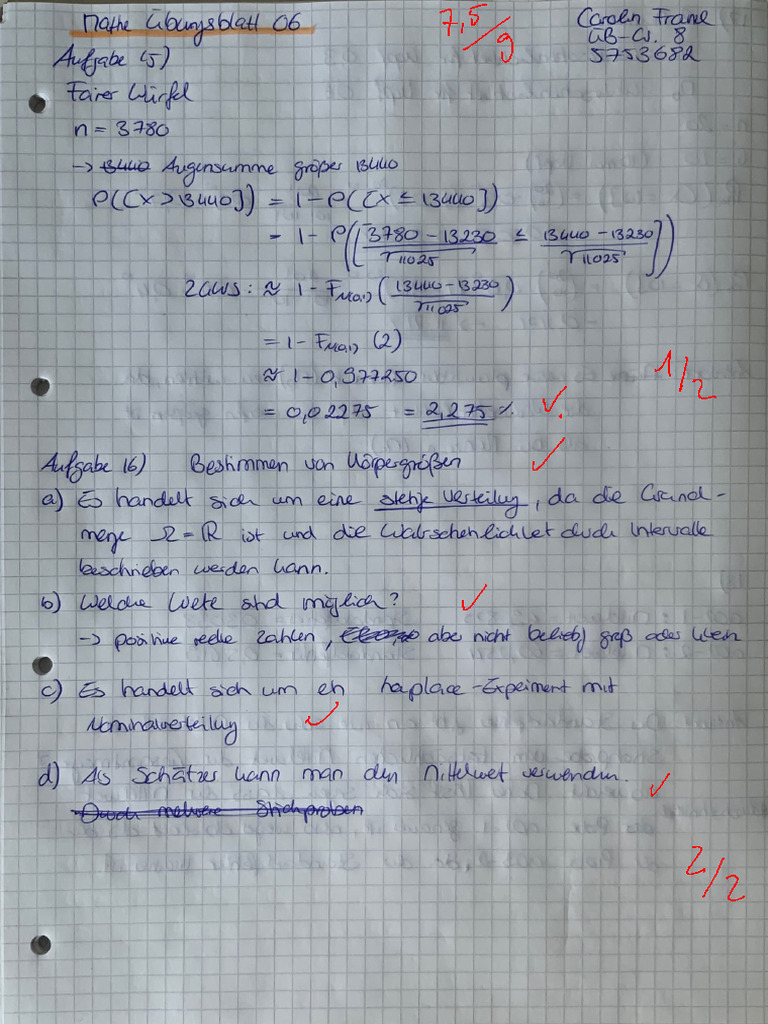 Mathe Übungsblatt 06
7,5/9
Carolin Franel
ÜB-Gr. 8
5753682
Aufgabe 15)
Fairer Würfel
n = 3780
→ 13440 Augensumme größer 13440
P([X > 13440]) = 1 - P([X ≤ 13440])
= 1 - P([(3780 - 13230)/√11025 ≤ (13440 - 13230)/√11025])
ZGWS: ≈ 1 - F_N(0,1) ((13440 - 13230)/√11025)
= 1 - F_N(0,1) (2)
≈ 1 - 0,977250
1/2
= 0,02275 = 2,275 % ✓
Aufgabe 16) Bestimmen von Körpergrößen ✓
a) Es handelt sich um eine stetige Verteilung, da die Grund-
menge Ω = ℝ ist und die Wahrscheinlichkeit durch Intervalle
beschrieben werden kann.
b) Welche Werte sind möglich? ✓
→ positive reelle Zahlen, aber nicht beliebig groß oder klein
c) Es handelt sich um ein Laplace-Experiment mit
Normalverteilung ✓
d) Als Schätzer kann man den Mittelwert verwenden. ✓
Durch mehrere Stichproben
2/2